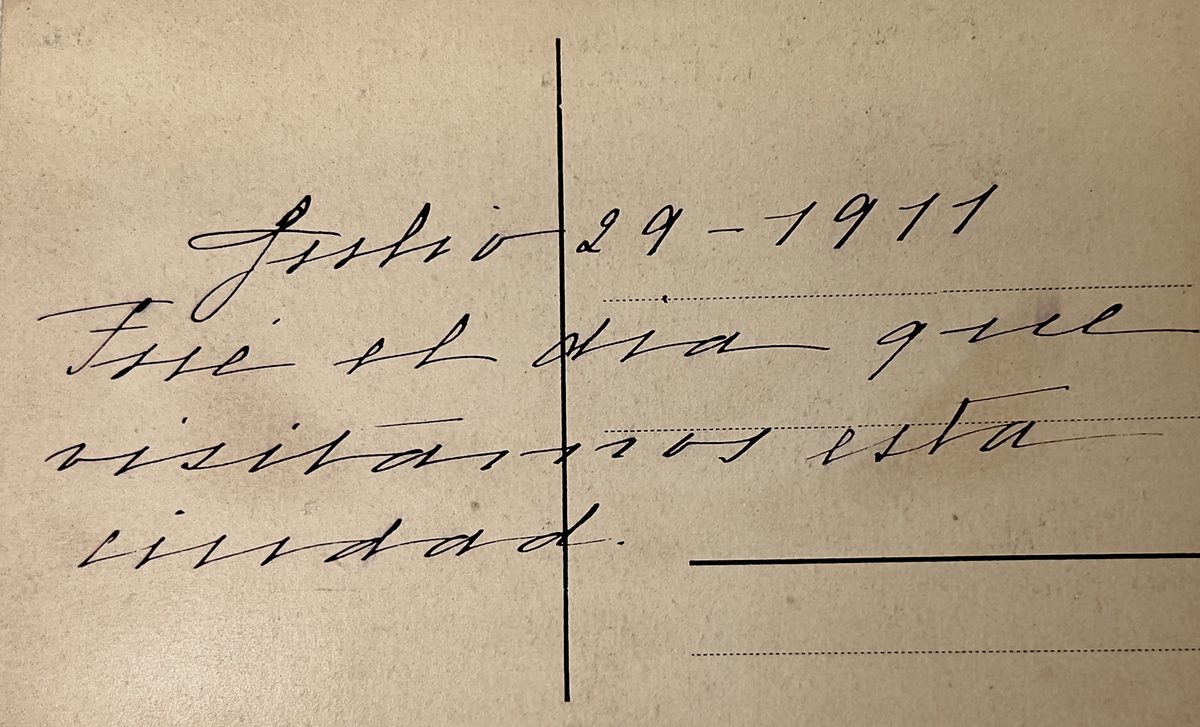 Julio 29-1911
Fué el dia que
visitamos esta
ciudad.